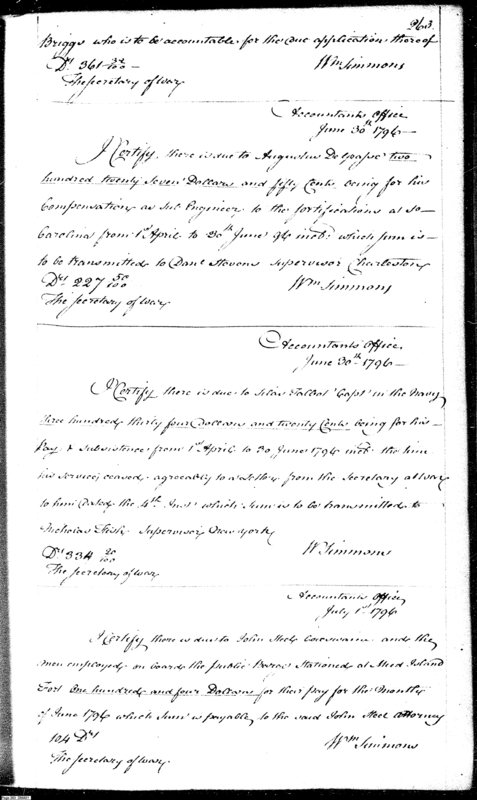 263
Briggs who is to be accountable for the due application thereof
Drs 361 32/100 Wm Simmons
The Secretary of War
Accountants Office
June 30th 1796
I Certify, there is due to Augustus De two
hundred twenty Seven Dollars and fifty Cents, being for his
Compensation as Sub Engineer to the fortifications at So
Carolina from 1st April to 30th June 96 inclt. which sum is
to be transmitted to Danl Stevens Supervisor Charleston
Drs 227 50/100 Wm Simmons
The Secretary of War
Accountants Office
June 30th 1796
I Certify there is due to Silas Talbot Capt in the Navy
three hundred thirty four Dollars and twenty Cents being for his
Pay & Subsistence from 1st April to 30 June 1796 inclt. the time
his services ceased agreeably to a letter from the Secretary at War
to him Dated the 4th Inst which Sum is to be transmitted to
Nicholas Fish Supervisor New York
Drs 334 20/100 W Simmons
The Secretary of War
Accountants Office
July 1st 1796
I Certify there is due to John Steel and the
men employed on board the public Stationed at Mud Island
Fort One hundred and four Dollars for their pay for the Month
of June 1796 which Sum is payable to the said John Steel attorney
104 Drs Wm Simmons
The Secretary of War